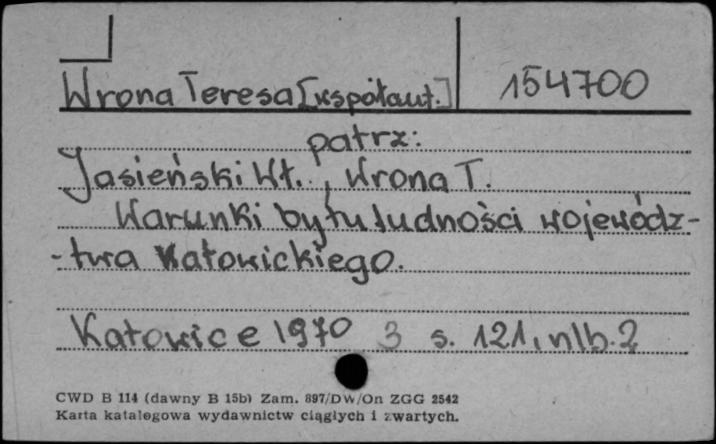 Wrona Teresa [współaut.] 154700
patrz:
Jasieński Wł., Wrona T.
Warunki bytu ludności wojewódz-
-twa Katowickiego.
Katowice 1970 3 s. 121, nlb. 2
CWD B 114 (dawny B 15b) Zam. 897/DW/On ZGG 2542
Karta katalogowa wydawnictw ciągłych i zwartych.